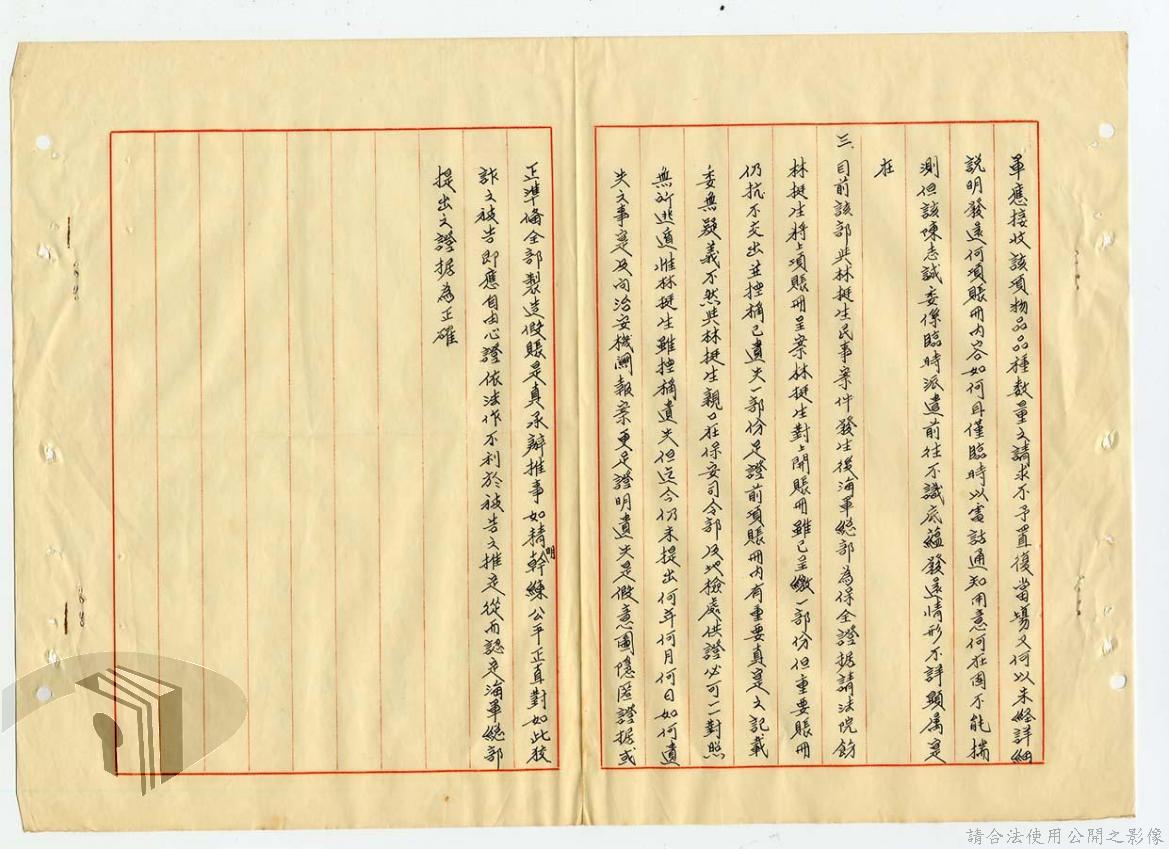 軍應接收該項物品品種数量之請求不予置復當場又何以未經詳細
說明發還何項賬冊內容如何且僅臨時以電話通知用意何在固不能揣
測但該陳志誠委係臨時派遣前往不識底蘊發還情形不詳顯属寔
在
三、目前該部與林挺生民事案件發生後海軍總部為保全證据請法院飭
林挺生將上項賬冊呈案林挺生對上開賬冊雖已呈繳一部份但重要賬冊
仍抗不交出並控稱已遺失一部份足證前項賬冊內有重要真寔之記載
委無疑義不然與林挺生親口在保安司令部及地檢處供證必可一一對照
無所逃遁惟林挺生雖控稱遺失但迄今仍未提出何年何月何日如何遺
失之事寔及向治安機関報案更足證明遺失是假意圖隱匿證据或
正準備全部製造假賬是真承辦推事如精明幹練公平正直對如此狡
詐之被告即應自由心證依法作不利於被告之推定從而認定海軍總部
提出之證据為正確
請合法使用公開之影像